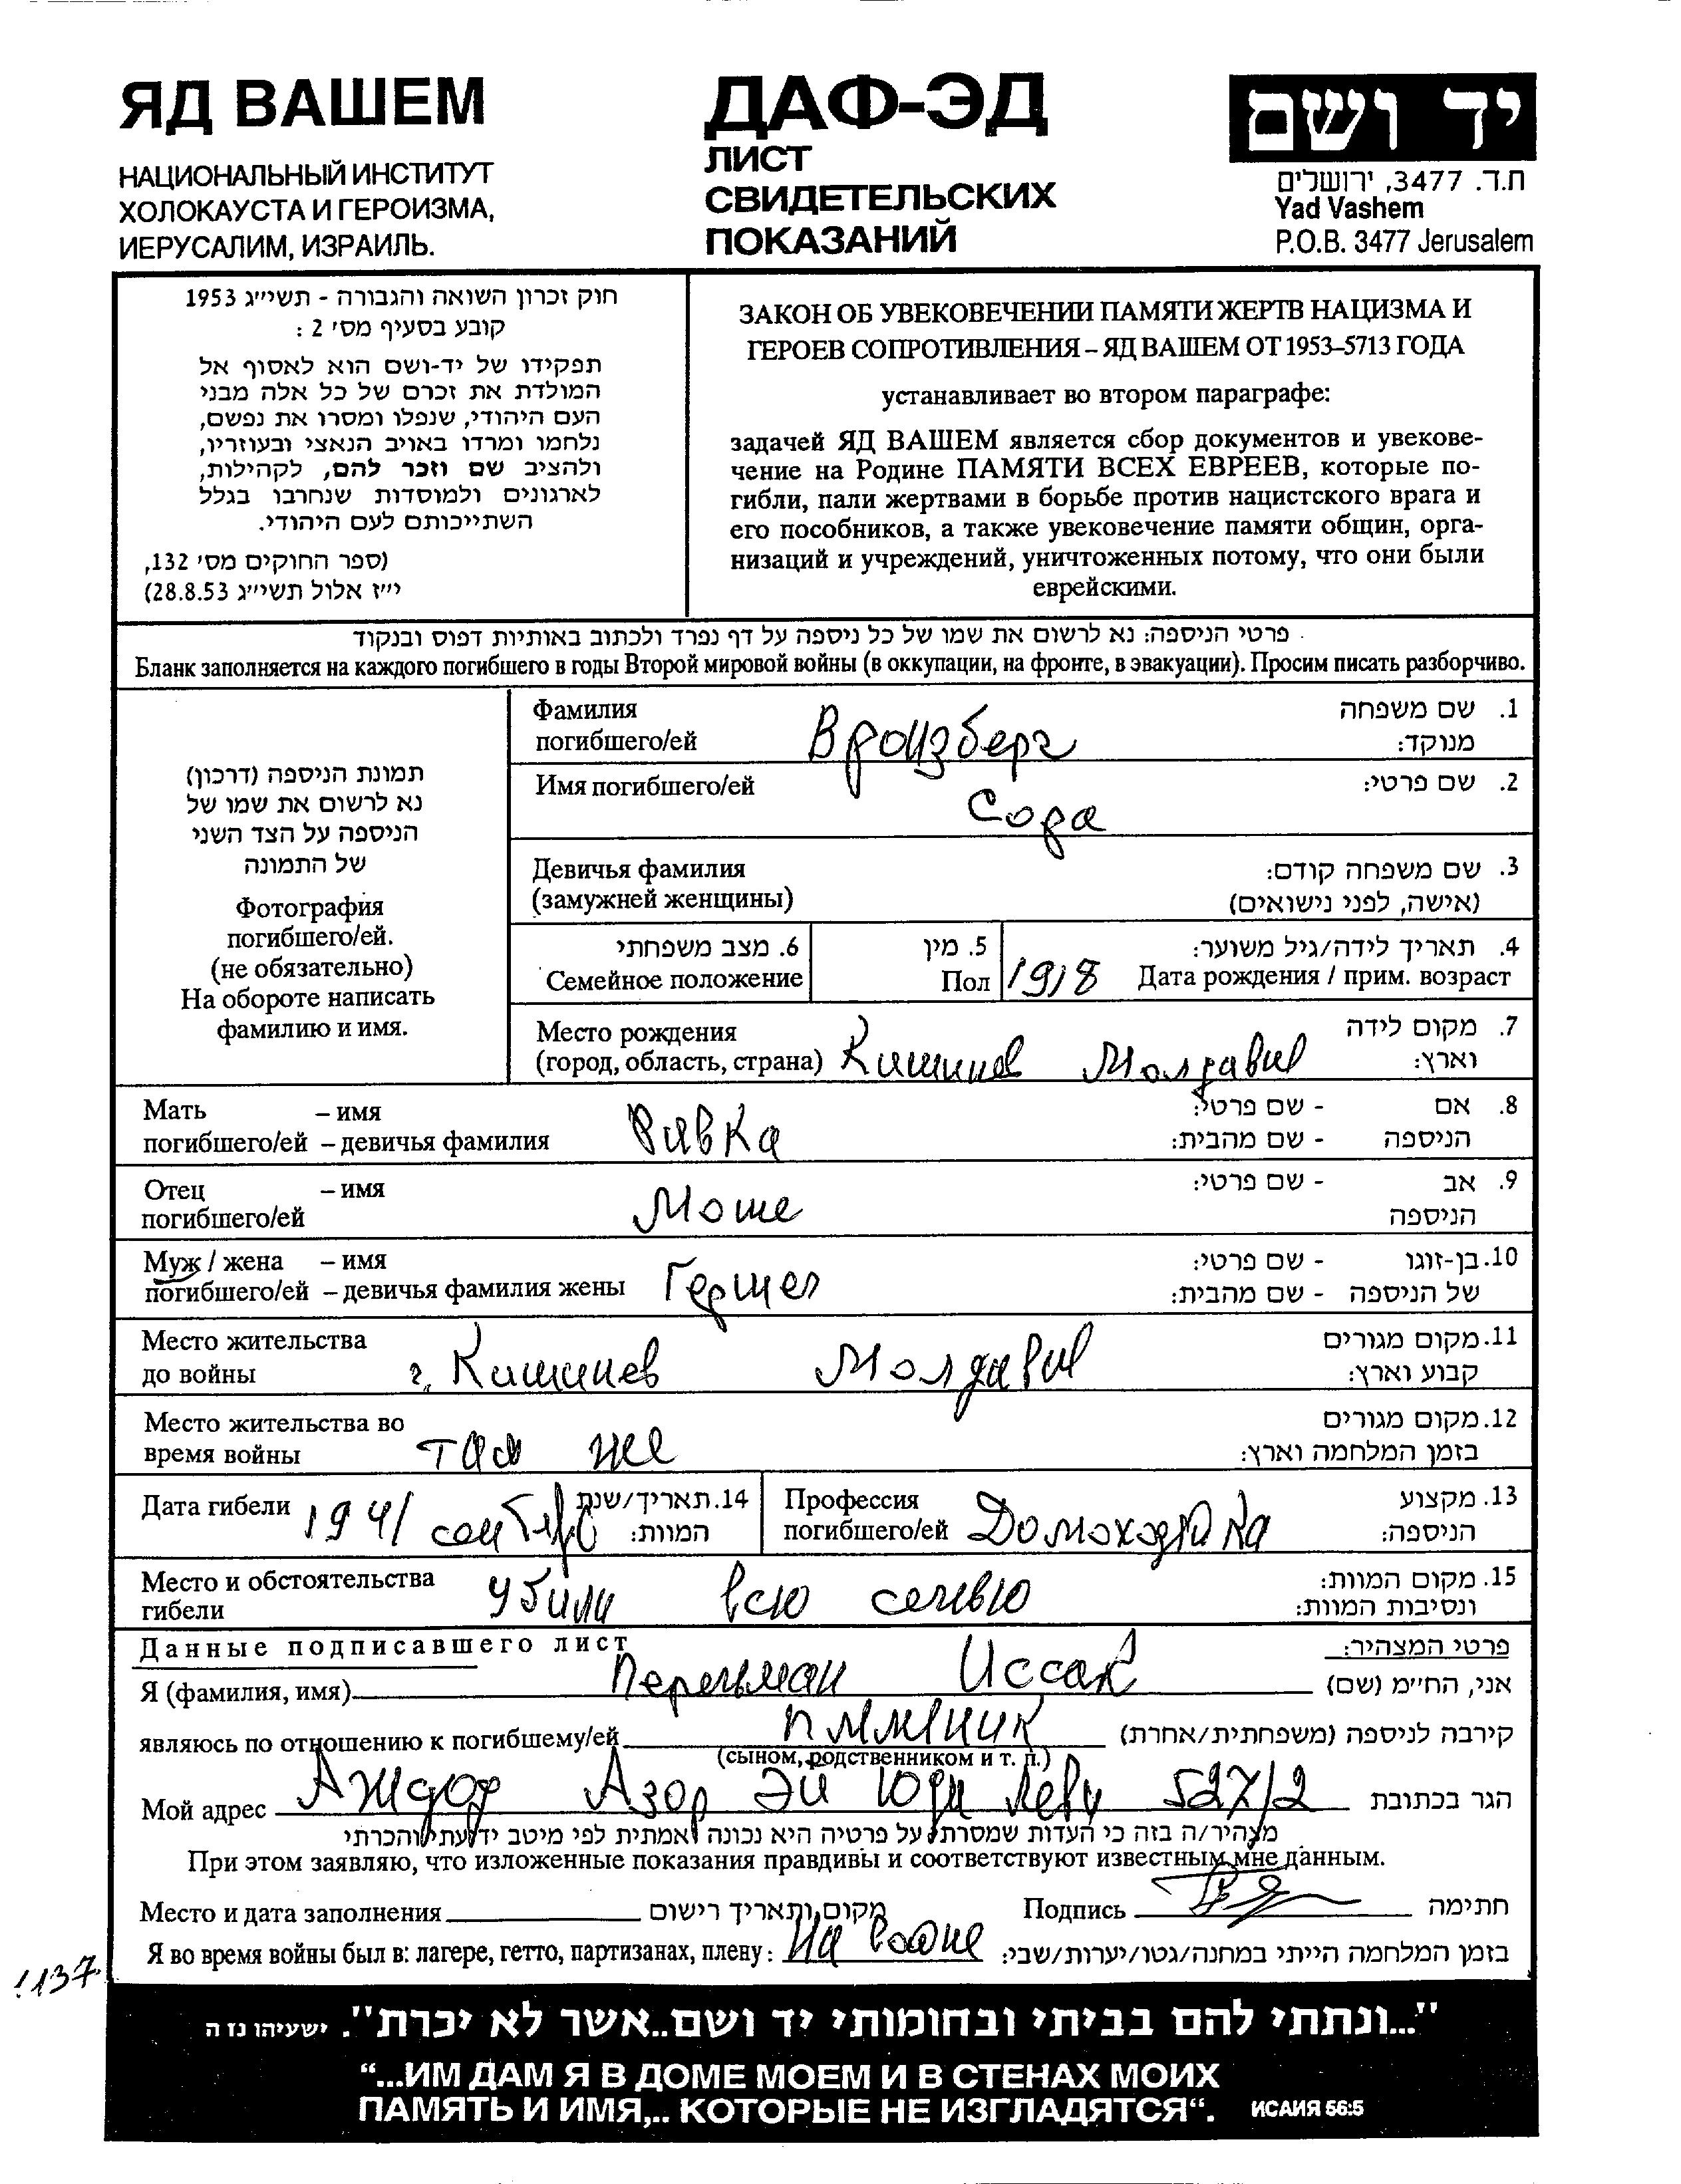 ЯД ВАШЕМ
НАЦИОНАЛЬНЫЙ ИНСТИТУТ
ХОЛОКАУСТА И ГЕРОИЗМА,
ИЕРУСАЛИМ, ИЗРАИЛЬ.
ДАФ-ЭД
ЛИСТ
СВИДЕТЕЛЬСКИХ
ПОКАЗАНИЙ
יד ושם
ת.ד. 3477, ירושלים
Yad Vashem
P.O.B. 3477 Jerusalem
חוק זכרון השואה והגבורה - תשי״ג 1953
קובע בסעיף מס׳ 2 :
תפקידו של יד-ושם הוא לאסוף אל
המולדת את זכרם של כל אלה מבני
העם היהודי, שנפלו ומסרו את נפשם,
נלחמו ומרדו באויב הנאצי ובעוזריו,
ולהציב שם וזכר להם, לקהילות,
לארגונים ולמוסדות שנחרבו בגלל
השתייכותם לעם היהודי.
(ספר החוקים מס׳ 132,
י״ז אלול תשי״ג 28.8.53)
ЗАКОН ОБ УВЕКОВЕЧЕНИИ ПАМЯТИ ЖЕРТВ НАЦИЗМА И
ГЕРОЕВ СОПРОТИВЛЕНИЯ – ЯД ВАШЕМ ОТ 1953–5713 ГОДА
устанавливает во втором параграфе:
задачей ЯД ВАШЕМ является сбор документов и увекове-
чение на Родине ПАМЯТИ ВСЕХ ЕВРЕЕВ, которые по-
гибли, пали жертвами в борьбе против нацистского врага и
его пособников, а также увековечение памяти общин, орга-
низаций и учреждений, уничтоженных потому, что они были
еврейскими.
פרטי הניספה: נא לרשום את שמו של כל ניספה על דף נפרד ולכתוב באותיות דפוס ובנקוד
Бланк заполняется на каждого погибшего в годы Второй мировой войны (в оккупации, на фронте, в эвакуации). Просим писать разборчиво.
תמונת הניספה (דרכון)
נא לרשום את שמו של
הניספה על הצד השני
של התמונה
Фотография
погибшего/ей.
(не обязательно)
На обороте написать
фамилию и имя.
Фамилия 1. שם משפחה
погибшего/ей Вроизберг מנוקד:
Имя погибшего/ей Сора 2. שם פרטי:
Девичья фамилия 3. שם משפחה קודם:
(замужней женщины) (אישה, לפני נישואים)
6. מצב משפחתי 5. מין 4. תאריך לידה/גיל משוער:
Семейное положение Пол 1918 Дата рождения / прим. возраст
Место рождения 7. מקום לידה
(город, область, страна) Кишинев Молдавия וארץ:
Мать – имя Ривка 8. אם - שם פרטי:
погибшего/ей – девичья фамилия הניספה - שם מהבית:
Отец – имя Моше 9. אב - שם פרטי:
погибшего/ей הניספה
Муж / жена – имя Гершел 10. בן-זוגו - שם פרטי:
погибшего/ей – девичья фамилия жены של הניספה - שם מהבית:
Место жительства 11. מקום מגורים
до войны г. Кишинев Молдавия קבוע וארץ:
Место жительства во 12. מקום מגורים
время войны там же בזמן המלחמה וארץ:
Дата гибели 1941 сентябрь 14. תאריך/שנת המוות:
Профессия 13. מקצוע
погибшего/ей Домохозяйка הניספה:
Место и обстоятельства 15. מקום המוות:
гибели Убили всю семью ונסיבות המוות:
Данные подписавшего лист פרטי המצהיר:
Я (фамилия, имя) Перельман Иссак אני, הח״מ (שם)
являюсь по отношению к погибшему/ей племяник קירבה לניספה (משפחתית/אחרת)
(сыном, родственником и т. п.)
Мой адрес Аждод Азор Эй Юди Леви 527/2 הגר בכתובת
מצהיר/ה בזה כי העדות שמסרתי על פרטיה היא נכונה ואמתית לפי מיטב ידיעתי והכרתי
При этом заявляю, что изложенные показания правдивы и соответствуют известным мне данным.
Место и дата заполнения מקום ותאריך רישום Подпись חתימה
Я во время войны был в: лагере, гетто, партизанах, плену: На войне בזמן המלחמה הייתי במחנה/גטו/יערות/שבי:
1137
"...ונתתי להם בביתי ובחומותי יד ושם..אשר לא יכרת". ישעיהו נז ה
“...ИМ ДАМ Я В ДОМЕ МОЕМ И В СТЕНАХ МОИХ
ПАМЯТЬ И ИМЯ,.. КОТОРЫЕ НЕ ИЗГЛАДЯТСЯ“. ИСАИЯ 56:5